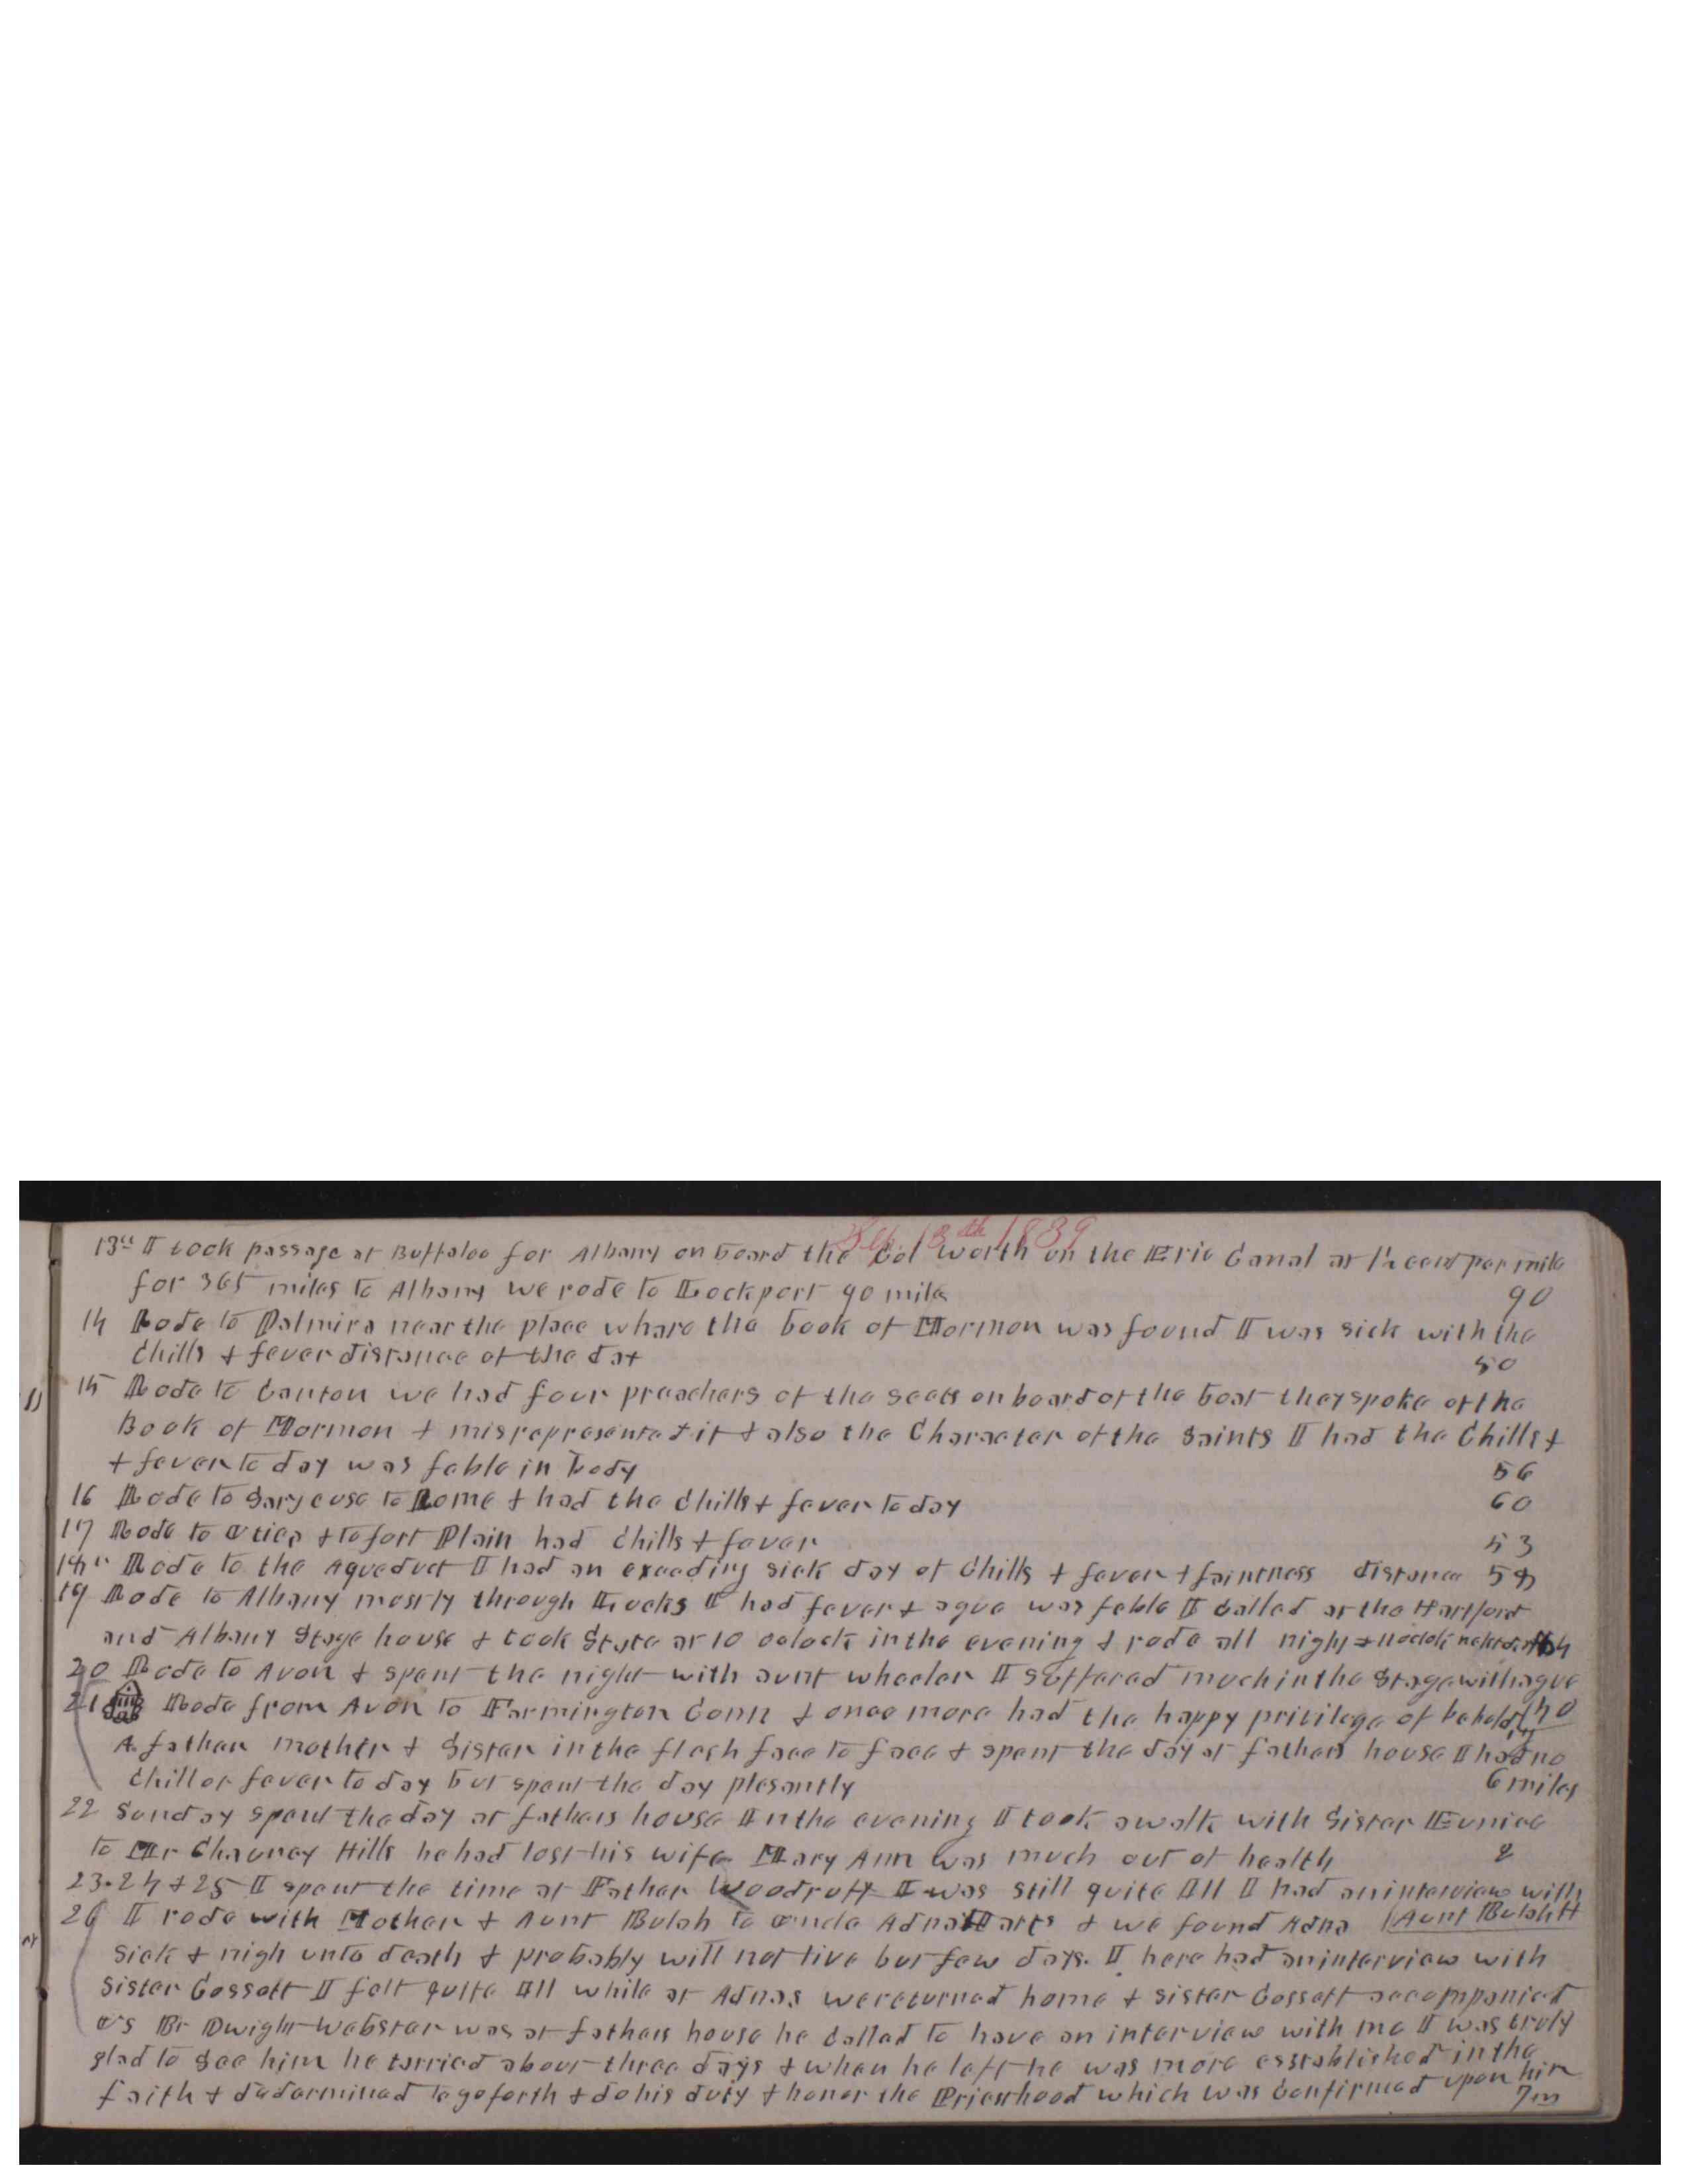 Sep. 13th 1839
13th I took passage at Buffaloo for Albany on board the Col Worth on the Erie Canal at 1½ cent per mile
for 365 miles to Albany we rode to Lockport 90 miles 90
14 Rode to Palmira near the place whare the book of Mormon was found I was sick with the
Chills & fever distance of the day 50
15 Rode to Canton we had four preachers of the sects on board of the boat they spoke of the
Book of Mormon & misrepresented it & also the Character of the Saints I had the Chills &
& fever to day was feble in body 56
16 Rode to Sarycuse to Rome & had the Chills & fever to day 60
17 Rode to Utica & to fort Plain had chills & fever 53
18th Rode to the Aqueduct I had an exceeding sick day of Chills & fever & faintness distance
19 Rode to Albany mostly through Locks I had fever & ague was feble I Called at the Hartford
and Albany Stage house & took State at 10 oclock in the evening & rode all night & 11 oclok
20 Rode to Avon & spent the night with aunt wheeler I suffered much in the Stage with ague
21 Rode from Avon to Farmington Conn & once more had the happy privilege of beholding 40
A father mother & Sister in the flesh face to face & spent the day at fathers house I had no
Chill or fever to day but spent the day plesantly 6 miles
22 Sunday spent the day at fathers house In the evening I took a walk with Sister Eunice
to Mr Chauncy Hills he had lost his wife Mary Ann was much out of health 2
23.24 & 25 I spent the time at Father Woodruff I was still quite Ill I had an interview with
26 I rode with Mother & Aunt Bulah to uncle Adna Harts & we found Adna (Aunt Bulah H
Sick & nigh unto death & probably will not live but few days. I here had an interview with
Sister Cossett I felt quite Ill while at Adnas we returned home & sister Cossett accompanied
us Br Dwight Webster was at fathers house he called to have an interview with me I was truly
glad to see him he tarried about three days & when he left he was more esstablished in the
faith & dedarmined to go forth & do his duty & honor the Priesthood which was Confirmed upon him
7 m